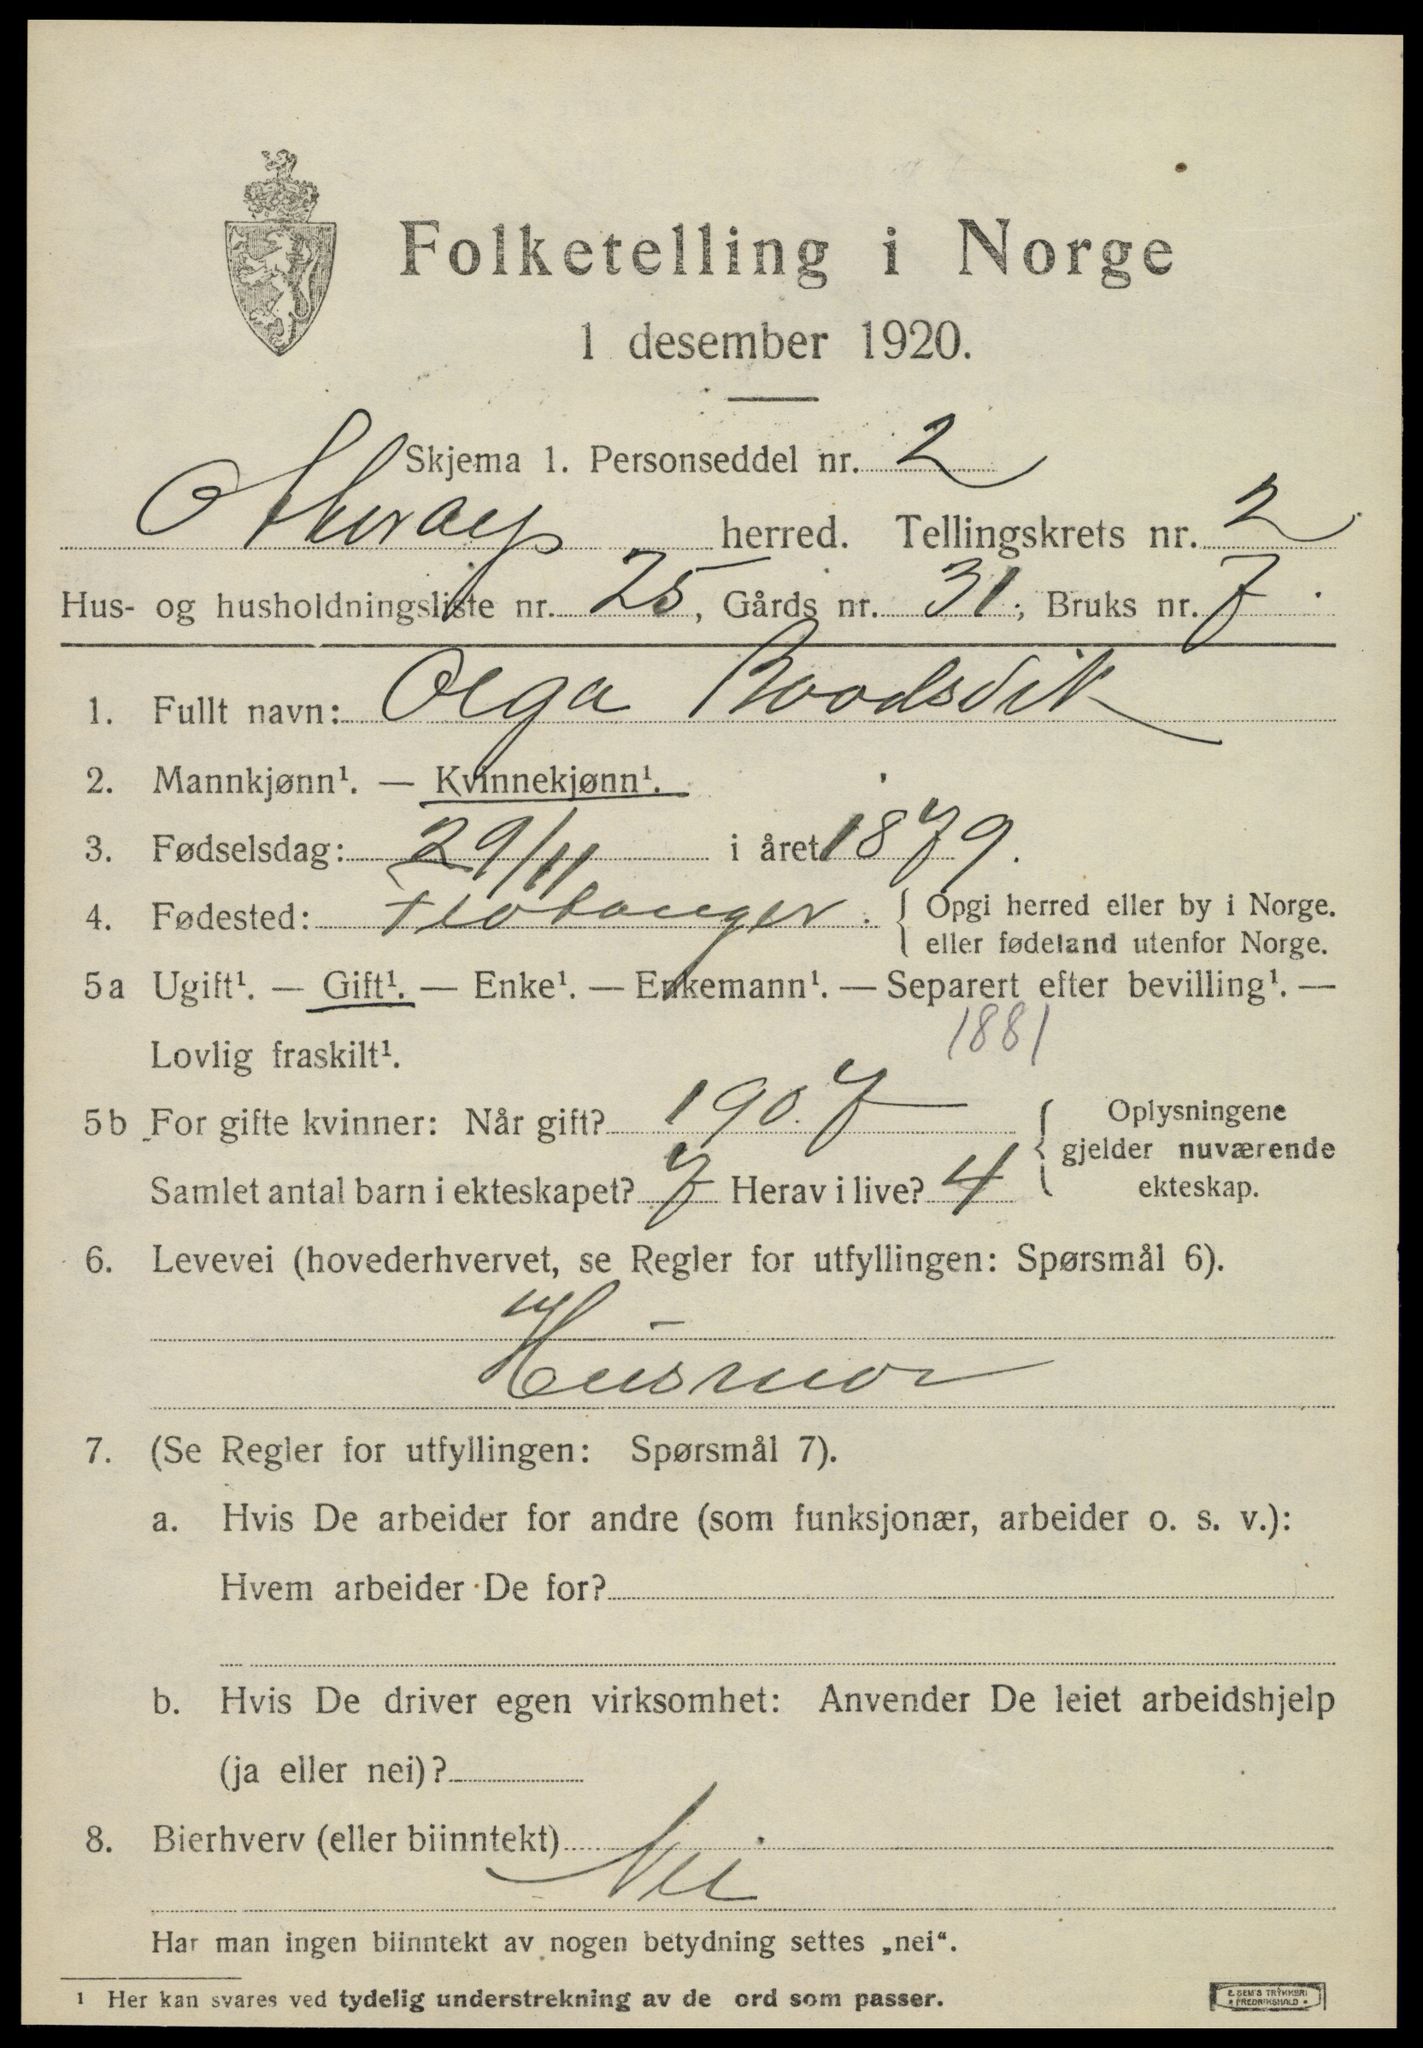 Folketelling i Norge
1 desember 1920.
Skjema 1. Personseddel nr. 2
Otterøy herred. Tellingskrets nr. 2
Hus- og husholdningsliste nr. 25, Gårds nr. 31, Bruks nr. 7
1. Fullt navn: Olga Boodsvik
2. Mannkjønn¹. — Kvinnekjønn¹.
3. Fødselsdag: 29/11 i året 1879.
4. Fødested: Flotanger. { Opgi herred eller by i Norge.
eller fødeland utenfor Norge.
5a Ugift¹. — Gift¹. — Enke¹. — Enkemann¹. — Separert efter bevilling¹. —
1881
Lovlig fraskilt¹.
5b For gifte kvinner: Når gift? 1907 { Oplysningene
gjelder nuværende
ekteskap.
Samlet antal barn i ekteskapet? 7 Herav i live? 4
6. Levevei (hovederhvervet, se Regler for utfyllingen: Spørsmål 6).
Husmor
7. (Se Regler for utfyllingen: Spørsmål 7).
a. Hvis De arbeider for andre (som funksjonær, arbeider o. s. v.):
Hvem arbeider De for?
b. Hvis De driver egen virksomhet: Anvender De leiet arbeidshjelp
(ja eller nei)?
8. Bierhverv (eller biinntekt) Nei
Har man ingen biinntekt av nogen betydning settes „nei“.
¹ Her kan svares ved tydelig understrekning av de ord som passer.
E. SEM'S TRYKKERI
FREDRIKSHALD